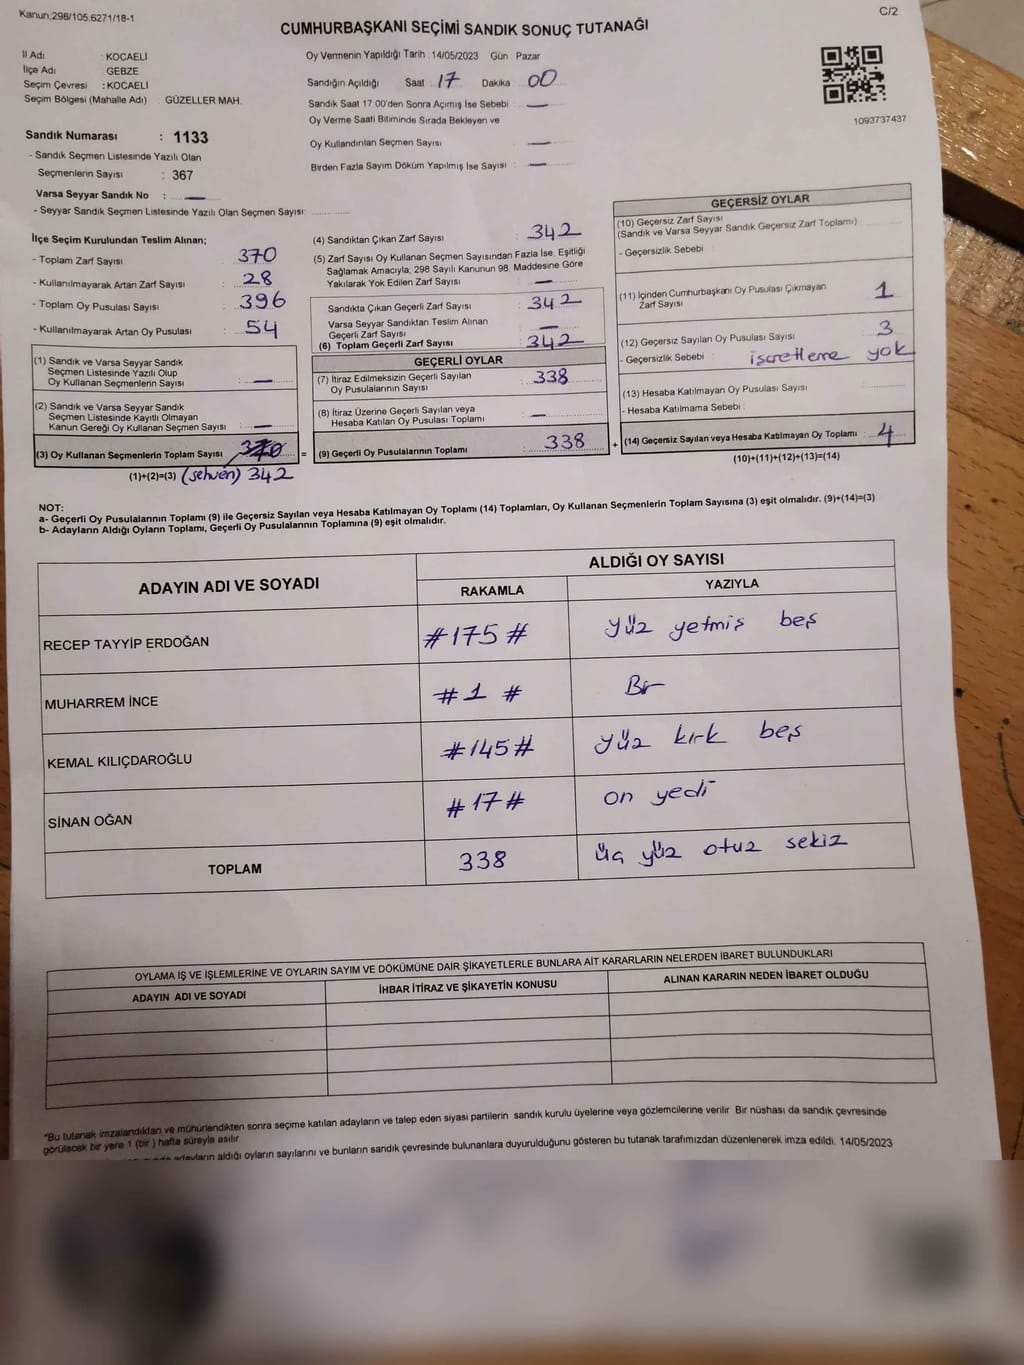 Kanun:298/105;6271/18-1
C/2
CUMHURBAŞKANI SEÇİMİ SANDIK SONUÇ TUTANAĞI
İl Adı : KOCAELİ
İlçe Adı : GEBZE
Seçim Çevresi : KOCAELİ
Seçim Bölgesi (Mahalle Adı) GÜZELLER MAH.
Sandık Numarası : 1133
- Sandık Seçmen Listesinde Yazılı Olan
Seçmenlerin Sayısı : 367
Varsa Seyyar Sandık No : —
- Seyyar Sandık Seçmen Listesinde Yazılı Olan Seçmen Sayısı:
Oy Vermenin Yapıldığı Tarih : 14/05/2023 Gün : Pazar
Sandığın Açıldığı Saat : 17 Dakika : 00
Sandık Saat 17:00'den Sonra Açımış İse Sebebi : —
Oy Verme Saati Bitiminde Sırada Bekleyen ve
Oy Kullandırılan Seçmen Sayısı : —
Birden Fazla Sayım Döküm Yapılmış İse Sayısı : —
1093737437
İlçe Seçim Kurulundan Teslim Alınan;
- Toplam Zarf Sayısı : 370
- Kullanılmayarak Artan Zarf Sayısı : 28
- Toplam Oy Pusulası Sayısı : 396
- Kullanılmayarak Artan Oy Pusulası : 54
(1) Sandık ve Varsa Seyyar Sandık
Seçmen Listesinde Yazılı Olup
Oy Kullanan Seçmenlerin Sayısı : —
(2) Sandık ve Varsa Seyyar Sandık
Seçmen Listesinde Kayıtlı Olmayan
Kanun Gereği Oy Kullanan Seçmen Sayısı : —
(3) Oy Kullanan Seçmenlerin Toplam Sayısı : 370
(1)+(2)=(3) (sehven) 342
(4) Sandıktan Çıkan Zarf Sayısı : 342
(5) Zarf Sayısı Oy Kullanan Seçmen Sayısından Fazla İse, Eşitliği
Sağlamak Amacıyla; 298 Sayılı Kanunun 98. Maddesine Göre
Yakılarak Yok Edilen Zarf Sayısı : —
Sandıkta Çıkan Geçerli Zarf Sayısı : 342
Varsa Seyyar Sandıktan Teslim Alınan
Geçerli Zarf Sayısı : —
(6) Toplam Geçerli Zarf Sayısı : 342
GEÇERLİ OYLAR
(7) İtiraz Edilmeksizin Geçerli Sayılan
Oy Pusulalarının Sayısı : 338
(8) İtiraz Üzerine Geçerli Sayılan veya
Hesaba Katılan Oy Pusulası Toplamı : —
= (9) Geçerli Oy Pusulalarının Toplamı : 338
GEÇERSİZ OYLAR
(10) Geçersiz Zarf Sayısı
(Sandık ve Varsa Seyyar Sandık Geçersiz Zarf Toplamı)
- Geçersizlik Sebebi :
(11) İçinden Cumhurbaşkanı Oy Pusulası Çıkmayan
Zarf Sayısı : 1
(12) Geçersiz Sayılan Oy Pusulası Sayısı : 3
- Geçersizlik Sebebi : işaretleme yok
(13) Hesaba Katılmayan Oy Pusulası Sayısı
- Hesaba Katılmama Sebebi :
+ (14) Geçersiz Sayılan veya Hesaba Katılmayan Oy Toplamı : 4
(10)+(11)+(12)+(13)=(14)
NOT:
a- Geçerli Oy Pusulalarının Toplamı (9) ile Geçersiz Sayılan veya Hesaba Katılmayan Oy Toplamı (14) Toplamları, Oy Kullanan Seçmenlerin Toplam Sayısına (3) eşit olmalıdır. (9)+(14)=(3)
b- Adayların Aldığı Oyların Toplamı, Geçerli Oy Pusulalarının Toplamına (9) eşit olmalıdır.
ADAYIN ADI VE SOYADI
ALDIĞI OY SAYISI
RAKAMLA YAZIYLA
RECEP TAYYİP ERDOĞAN #175# yüz yetmiş beş
MUHARREM İNCE #1# Bir
KEMAL KILIÇDAROĞLU #145# yüz kırk beş
SİNAN OĞAN #17# on yedi
TOPLAM 338 üç yüz otuz sekiz
OYLAMA İŞ VE İŞLEMLERİNE VE OYLARIN SAYIM VE DÖKÜMÜNE DAİR ŞİKAYETLERLE BUNLARA AİT KARARLARIN NELERDEN İBARET BULUNDUKLARI
ADAYIN ADI VE SOYADI İHBAR İTİRAZ VE ŞİKAYETİN KONUSU ALINAN KARARIN NEDEN İBARET OLDUĞU
"Bu tutanak imzalandıktan ve mühürlendikten sonra seçime katılan adayların ve talep eden siyasi partilerin sandık kurulu üyelerine veya gözlemcilerine verilir Bir nüshası da sandık çevresinde
görülecek bir yere 1 (bir) hafta süreyle asılır
adayların aldığı oyların sayılarını ve bunların sandık çevresinde bulunanlara duyurulduğunu gösteren bu tutanak tarafımızdan düzenlenerek imza edildi. 14/05/2023